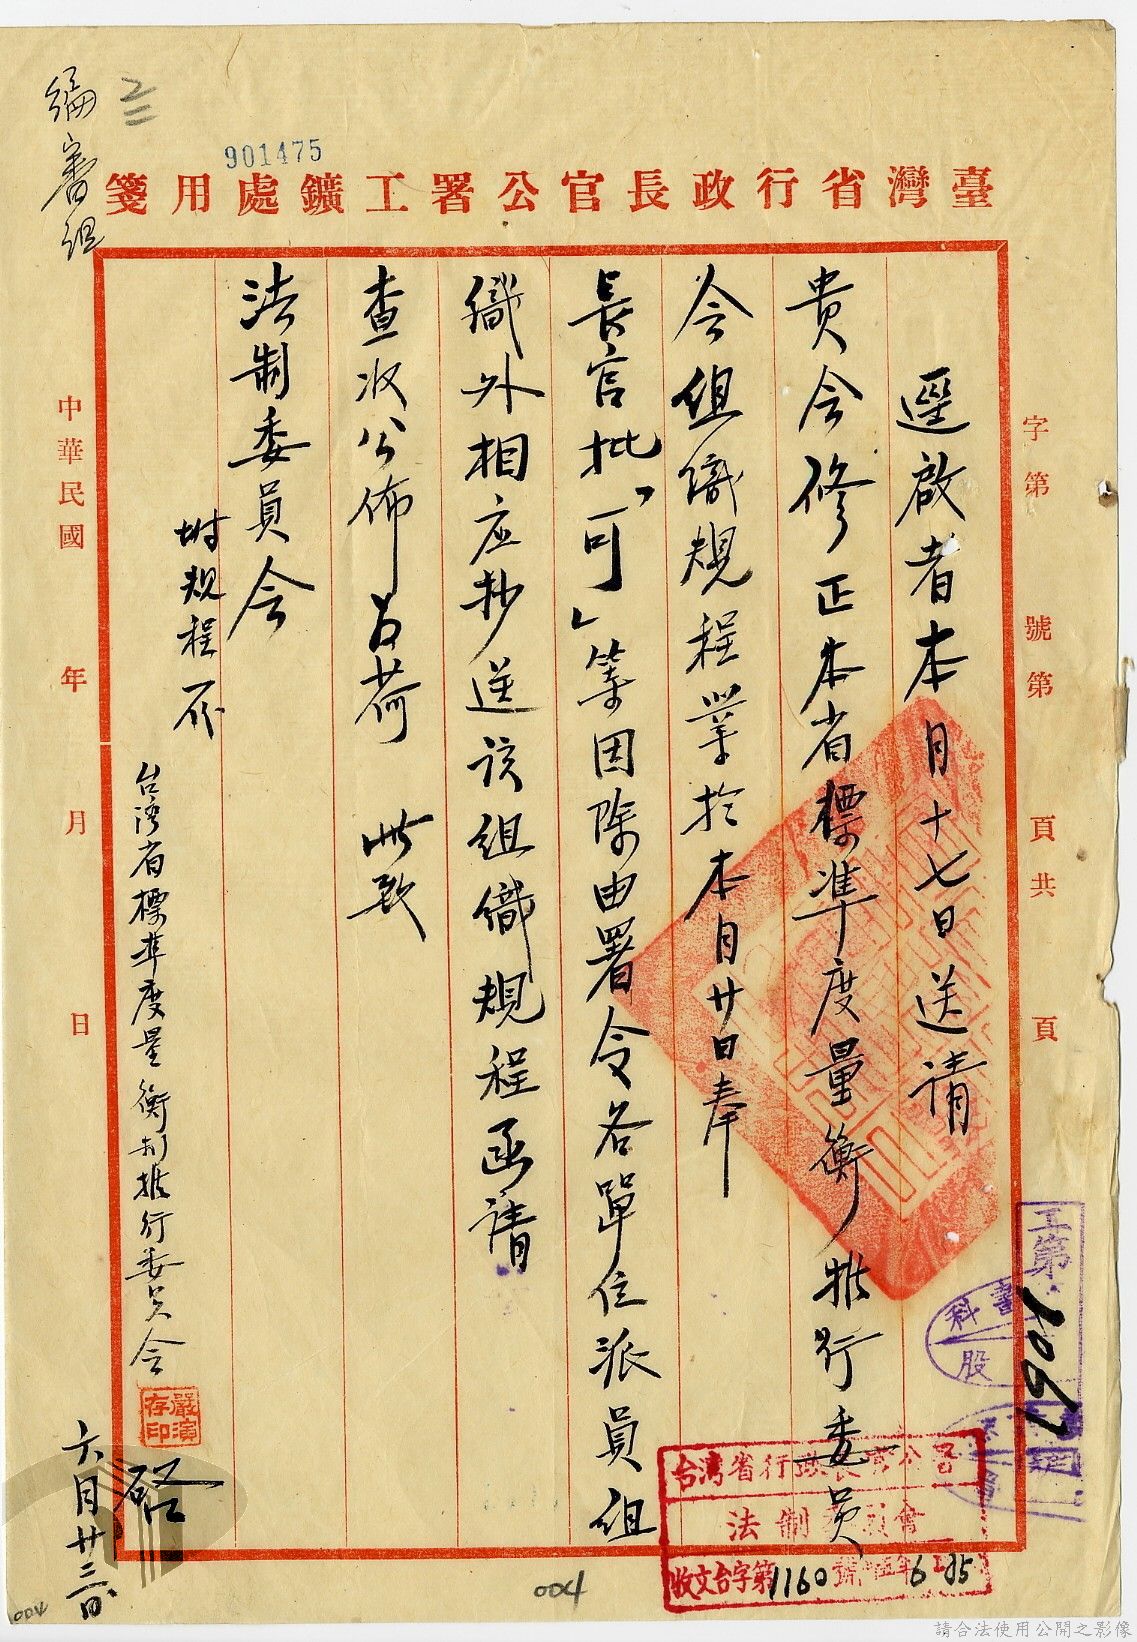 901475
臺灣省行政長官公署工鑛處用箋
字第　號第　頁共　頁
逕啟者本月十七日送請
貴会修正本省標準度量衡推行委員
会組織規程業於本月廿日奉
長官批「可」等因除由署令各單位派員組
織外相应抄送該組織規程函請
查收公佈為荷　此致
法制委員会
附規程一份
台湾省標準度量衡制推行委員会
嚴演存印
啓
六月廿三日
中華民國　年　月　日
編審組
工第
1901
科
股
台灣省行政長官公署
法制委員會
收文台字第1160號
004
004
請合法使用公開之影像